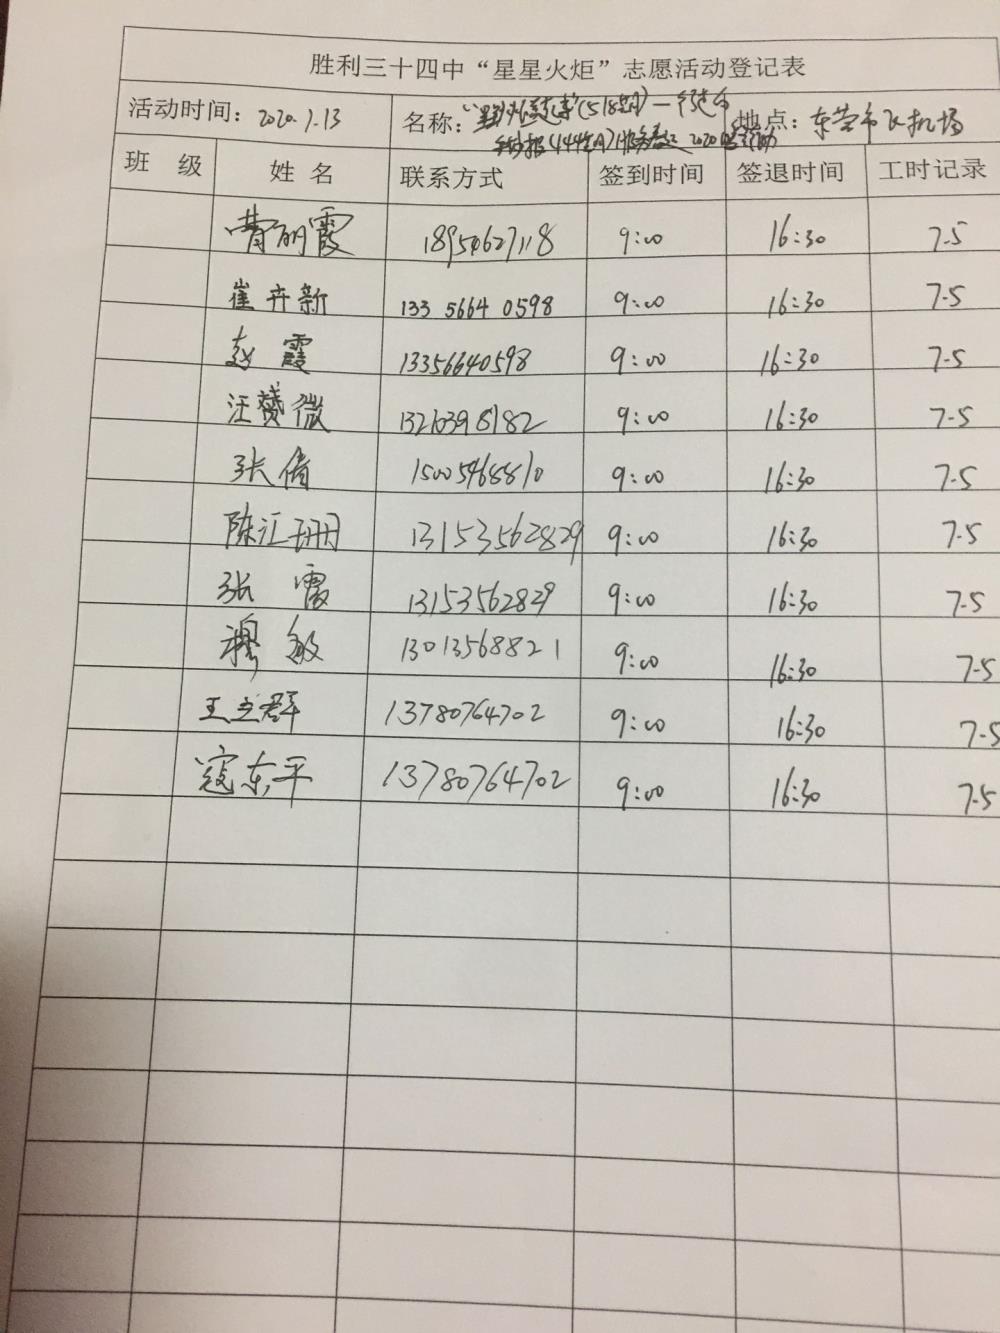 胜利三十四中“星星火炬”志愿活动登记表
活动时间：2020.1.13 名称： (518期)一 地点：东营市飞机场
(144期) 2020
班 级 姓 名 联系方式 签到时间 签退时间 工时记录
曹丽霞 18954627118 9:00 16:30 7.5
崔卉新 133 5664 0598 9:00 16:30 7.5
赵霞 13356640598 9:00 16:30 7.5
汪赞微 13210398182 9:00 16:30 7.5
张倩 15005468810 9:00 16:30 7.5
陈江珊 13153562829 9:00 16:30 7.5
张霞 13153562829 9:00 16:30 7.5
穆敏 13013568821 9:00 16:30 7.5
王立群 13780764702 9:00 16:30 7.5
寇东平 13780764702 9:00 16:30 7.5